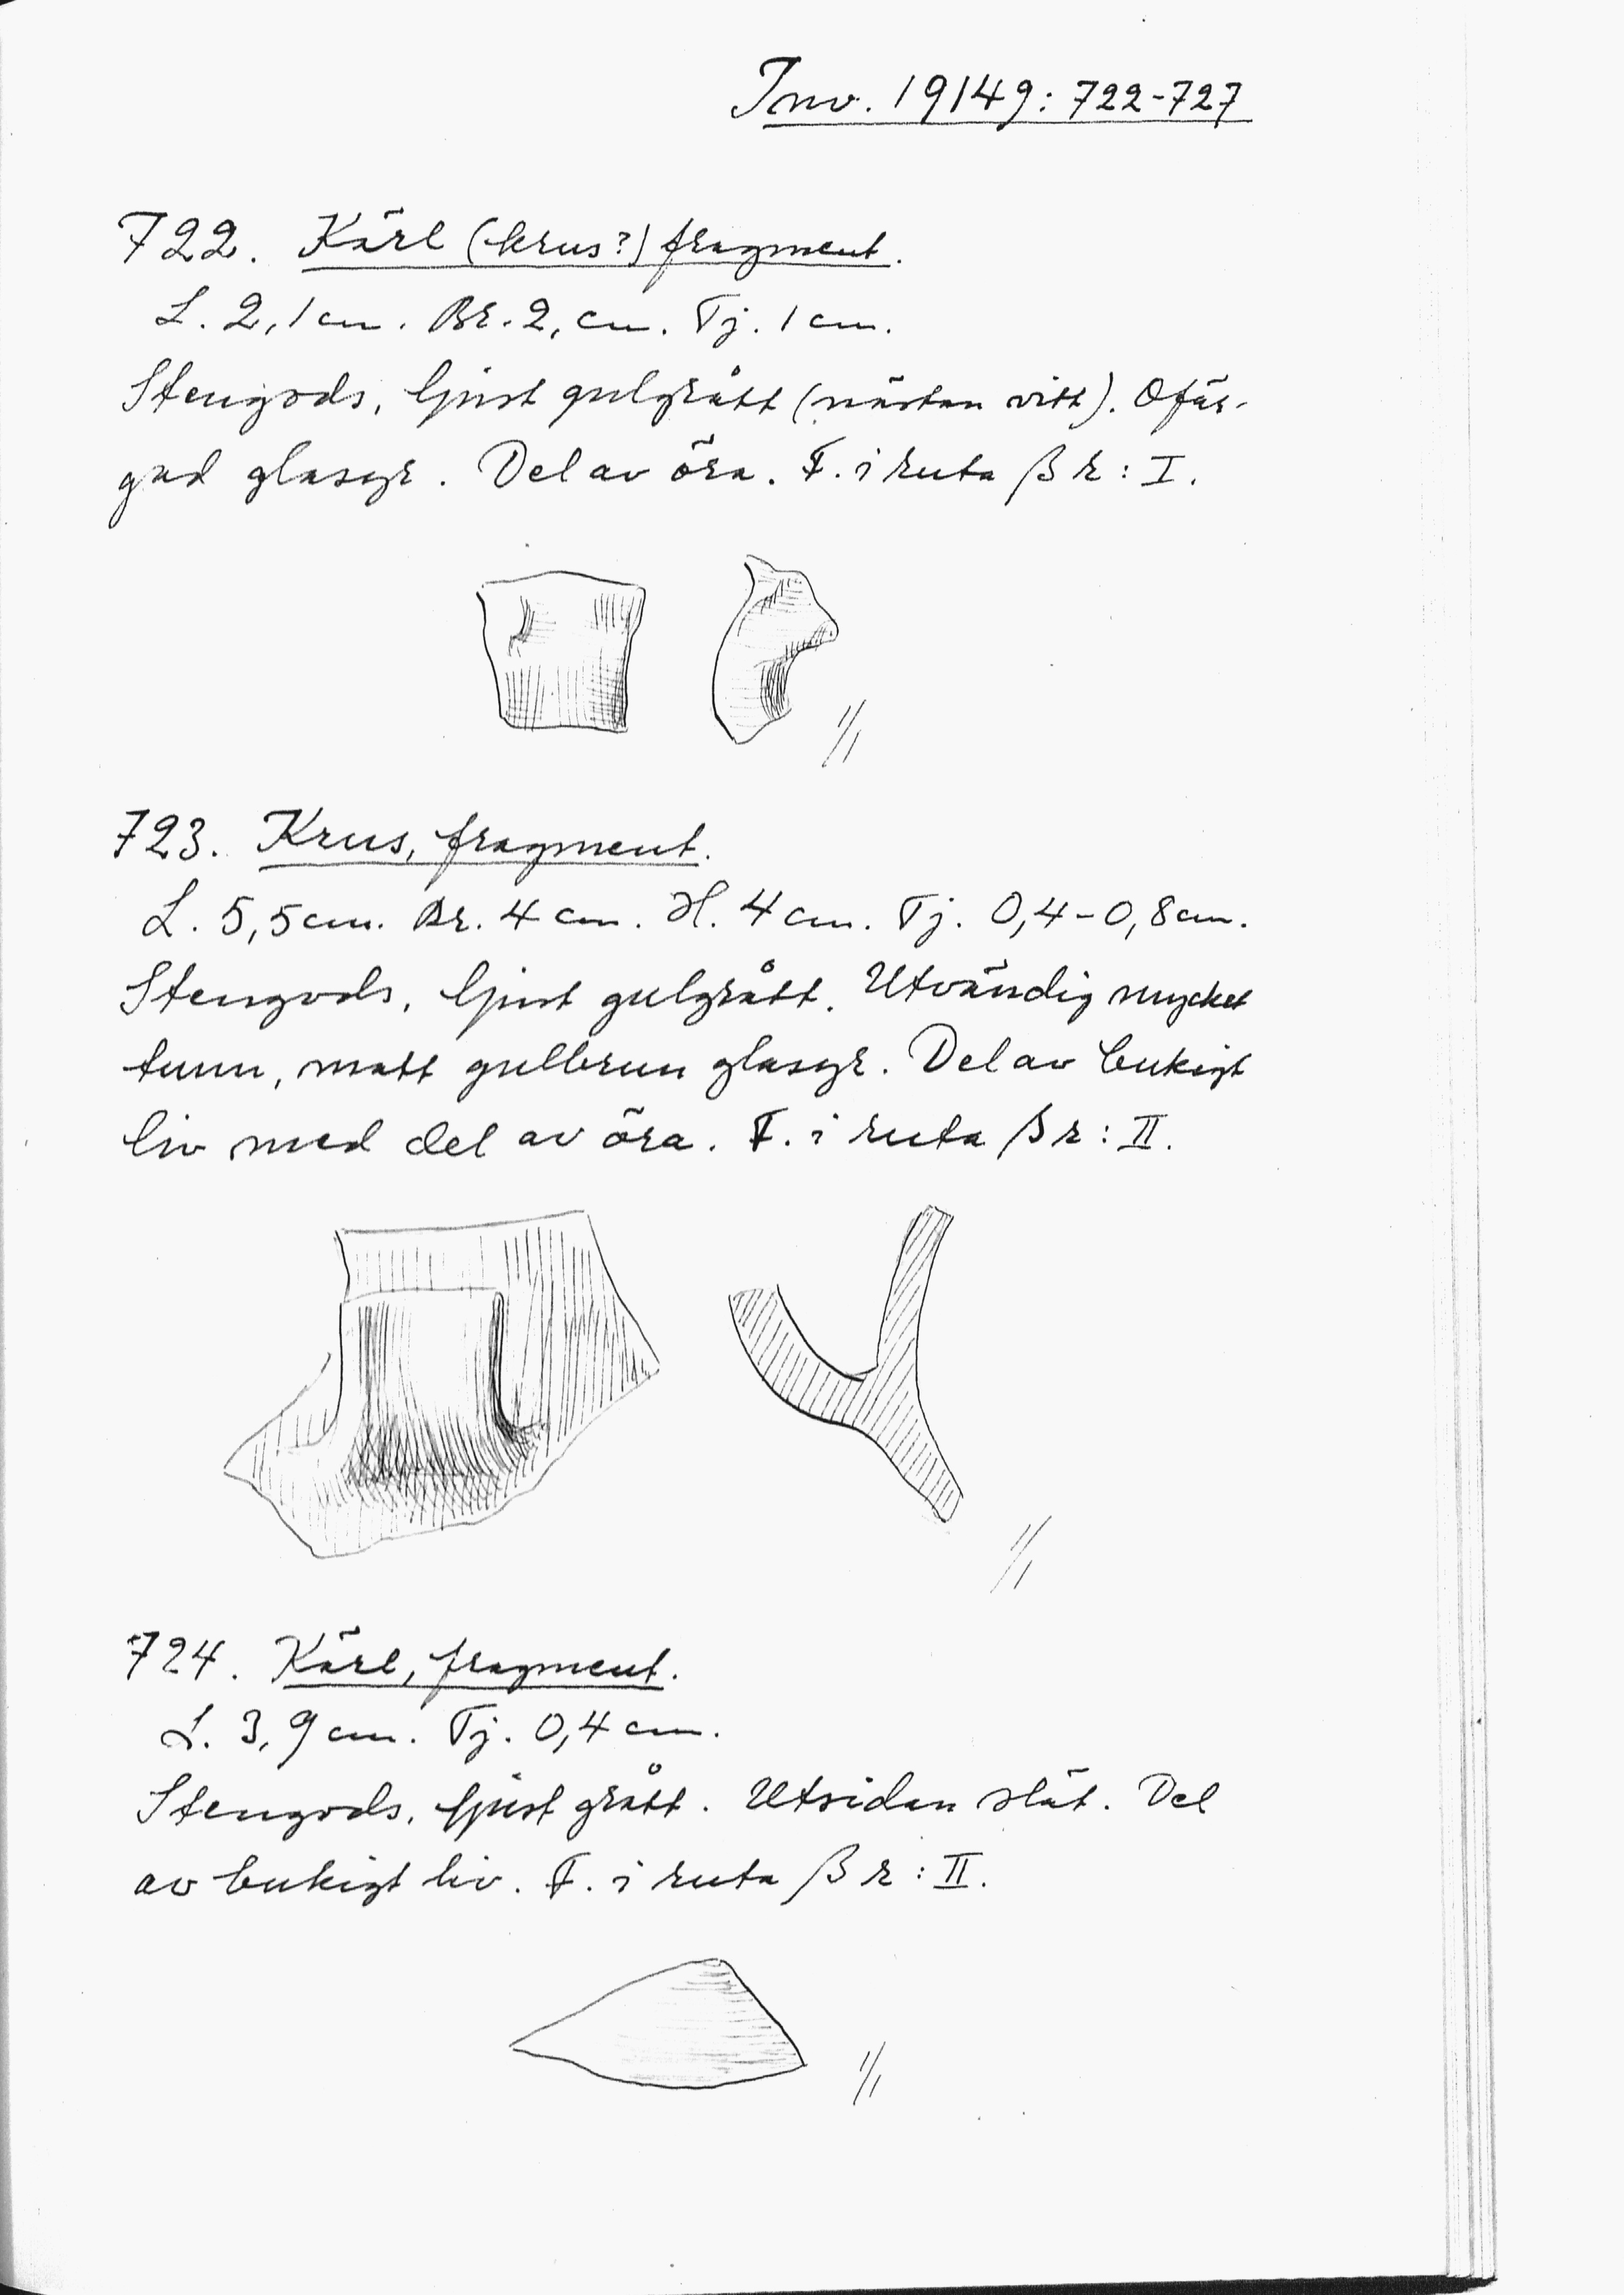 Inv. 19149: 722-727
722. Kärl (krus?) fragment.
L. 2,1 cm. Br. 2, cm. Tj. 1 cm.
Stengods, ljust gulgrått (nästan vitt). Ofär-
gad glasyr. Del av öra. F. i ruta βr: I.
1/1
723. Krus, fragment.
L. 5,5 cm. Br. 4 cm. H. 4 cm. Tj. 0,4-0,8 cm.
Stengods, ljust gulgrått. Utvändig mycket
tunn, matt gulbrun glasyr. Del av bukigt
liv med del av öra. F. i ruta βr: II.
1/1
724. Kärl, fragment.
L. 3,9 cm. Tj. 0,4 cm.
Stengods, ljust grått. Utsidan slät. Del
av bukigt liv. F. i ruta βr: II.
1/1